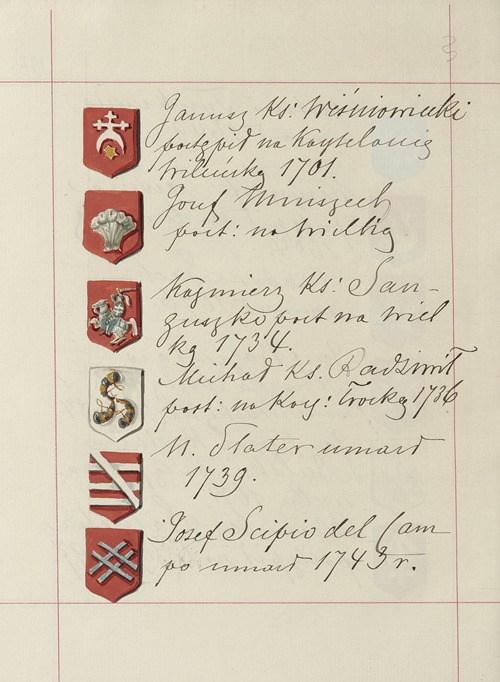 Janusz Ks: Wiśniowiecki
postąpił na Kasztelanię
Wileńską 1701.
Józef Mniszech
post: na Wielką
Kazmierz Ks: San-
guszko post na Wiel
ką 1734.
Michał Ks. Radziwiłł
post: na Kasz: Trocką 1736
N. Plater umarł
1739.
Josef Scipio del Cam
po umarł 1743 r.